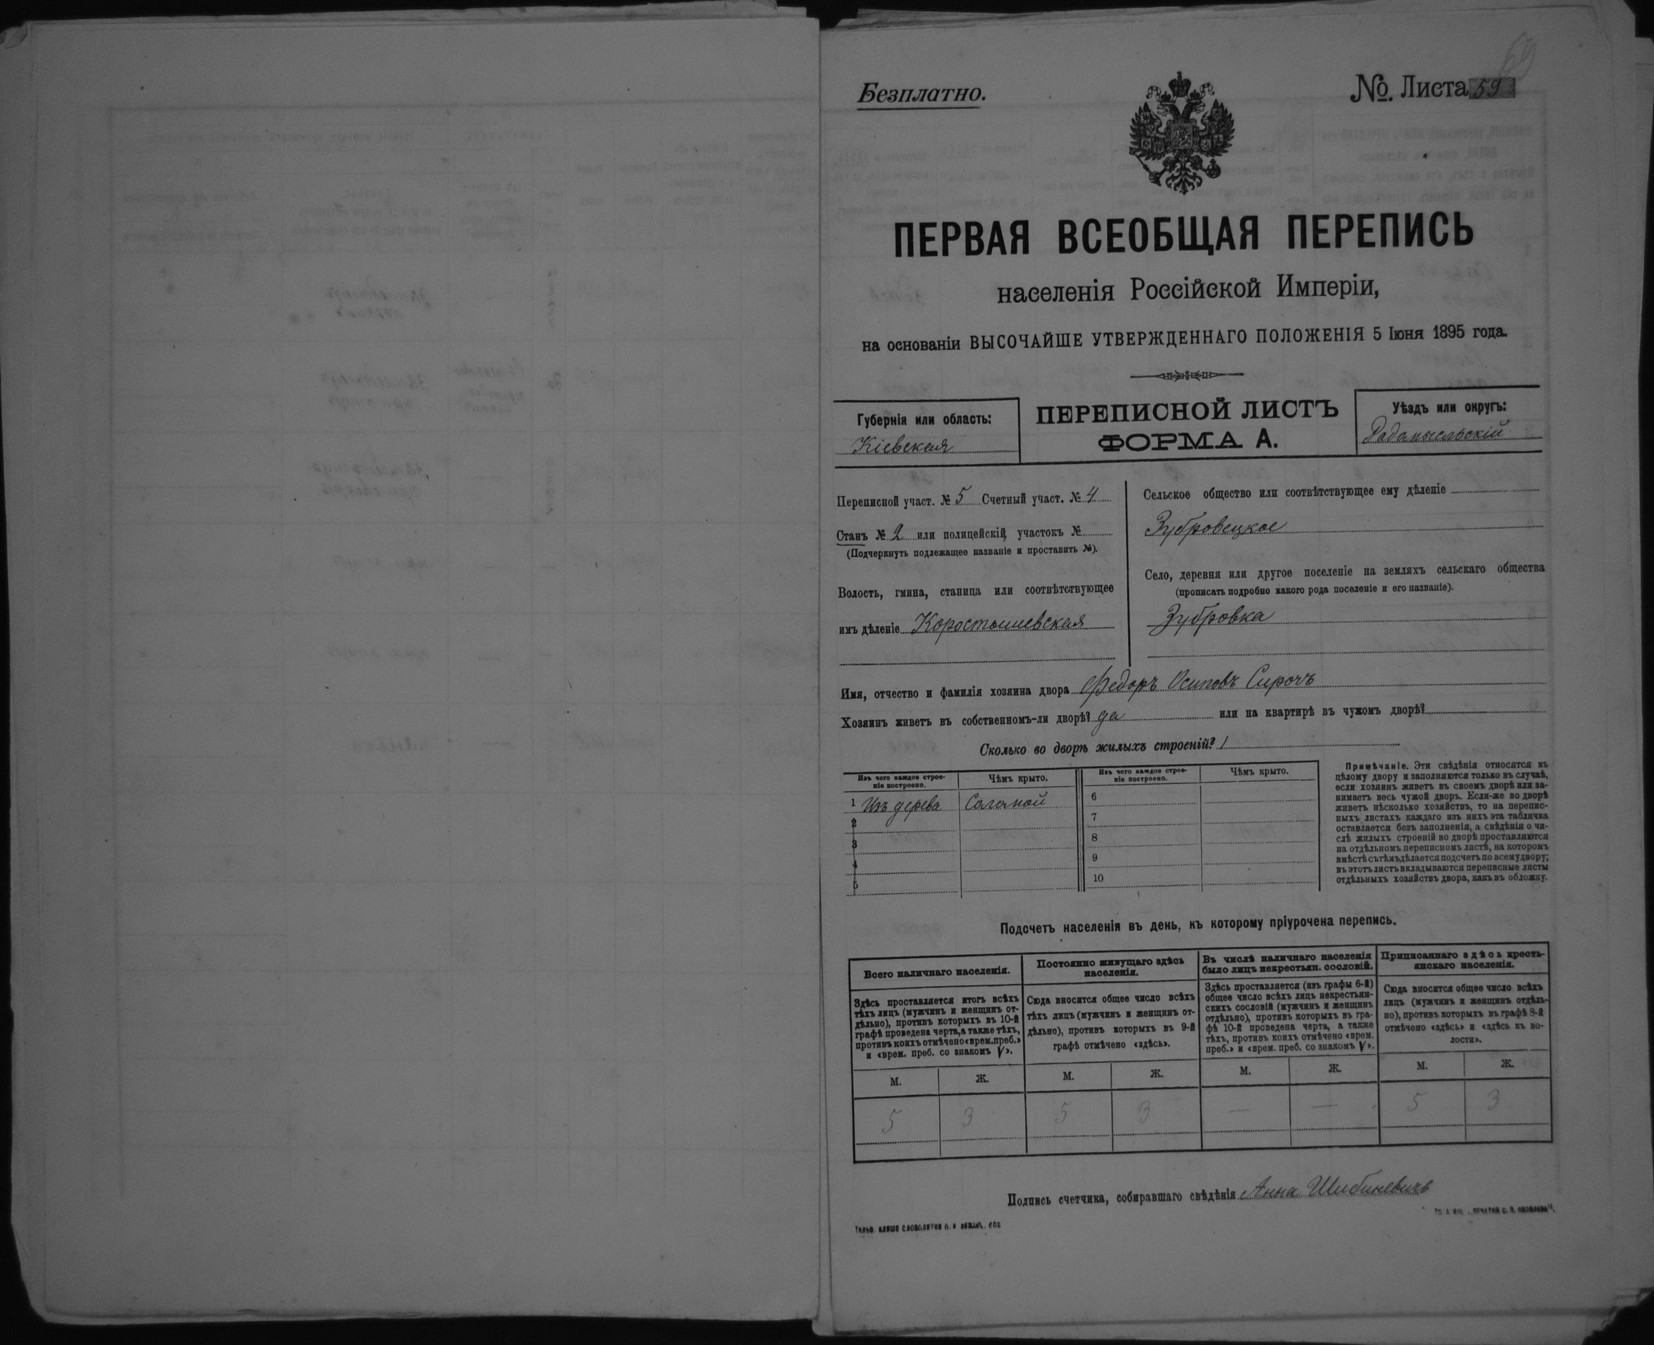 69
Безплатно.
№. Листа 59
ПЕРВАЯ ВСЕОБЩАЯ ПЕРЕПИСЬ
населенія Россійской Имперіи,
на основаніи ВЫСОЧАЙШЕ УТВЕРЖДЕННАГО ПОЛОЖЕНІЯ 5 Іюня 1895 года.
Губернія или область:
Кіевская
ПЕРЕПИСНОЙ ЛИСТЪ
ФОРМА А.
Уѣздъ или округъ:
Радомысльскій
Переписной участ. № 5 Счетный участ. № 4
Станъ № 2 или полицейскій участокъ №
(Подчеркнуть подлежащее названіе и проставить №).
Волость, гмина, станица или соотвѣтствующее
имъ дѣленіе Коростышевская
Сельское общество или соотвѣтствующее ему дѣленіе
Зубровецкое
Село, деревня или другое поселеніе на земляхъ сельскаго общества
(прописать подробно какого рода поселеніе и его названіе).
Зубровка
Имя, отчество и фамилія хозяина двора Федоръ Осиповъ Сирочъ
Хозяинъ живетъ въ собственномъ-ли дворѣ? да или на квартирѣ въ чужомъ дворѣ?
Сколько во дворѣ жилыхъ строеній? 1
Изъ чего каждое строе-
ніе построено.
Чѣмъ крыто.
1 Изъ дерева Соломой
2
3
4
5
Изъ чего каждое строе-
ніе построено.
Чѣмъ крыто.
6
7
8
9
10
Примѣчаніе. Эти свѣдѣнія относятся къ
цѣлому двору и заполняются только въ случаѣ,
если хозяинъ живетъ въ своемъ дворѣ или за-
нимаетъ весь чужой дворъ. Если-же во дворѣ
живетъ нѣсколько хозяйствъ, то на перепис-
ныхъ листахъ каждаго изъ нихъ эта табличка
оставляется безъ заполненія, а свѣдѣнія о чи-
слѣ жилыхъ строеній во дворѣ проставляются
на отдѣльномъ переписномъ листѣ, на которомъ
вмѣстѣ съ тѣмъ дѣлается подсчетъ по всему двору;
въ этотъ листъ вкладываются переписные листы
отдѣльныхъ хозяйствъ двора, какъ въ обложку.
Подсчетъ населенія въ день, къ которому пріурочена перепись.
Всего наличнаго населенія.
Здѣсь проставляется итогъ всѣхъ
тѣхъ лицъ (мужчинъ и женщинъ от-
дѣльно), противъ которыхъ въ 10-й
графѣ проведена черта, а также тѣхъ,
противъ коихъ отмѣчено «врем. преб.»
и «врем. преб. со знакомъ V».
Постоянно живущаго здѣсь
населенія.
Сюда вносится общее число всѣхъ
тѣхъ лицъ (мужчинъ и женщинъ от-
дѣльно), противъ которыхъ въ 9-й
графѣ отмѣчено «здѣсь».
Въ числѣ наличнаго населенія
было лицъ некрестьян. сословій.
Здѣсь проставляется (изъ графы 6-й)
общее число всѣхъ лицъ некрестьян-
скихъ сословій (мужчинъ и женщинъ
отдѣльно), противъ которыхъ въ гра-
фѣ 10-й проведена черта, а также
тѣхъ, противъ коихъ отмѣчено «врем.
преб.» и «врем. преб. со знакомъ V».
Приписаннаго здѣсь кресть-
янскаго населенія.
Сюда вносится общее число всѣхъ
лицъ (мужчинъ и женщинъ отдѣль-
но), противъ которыхъ въ графѣ 8-й
отмѣчено «здѣсь» и «здѣсь въ во-
лости».
М. Ж. М. Ж. М. Ж. М. Ж.
5 3 5 3 — — 5 3
Подпись счетчика, собиравшаго свѣдѣнія Анна Шибиневичъ